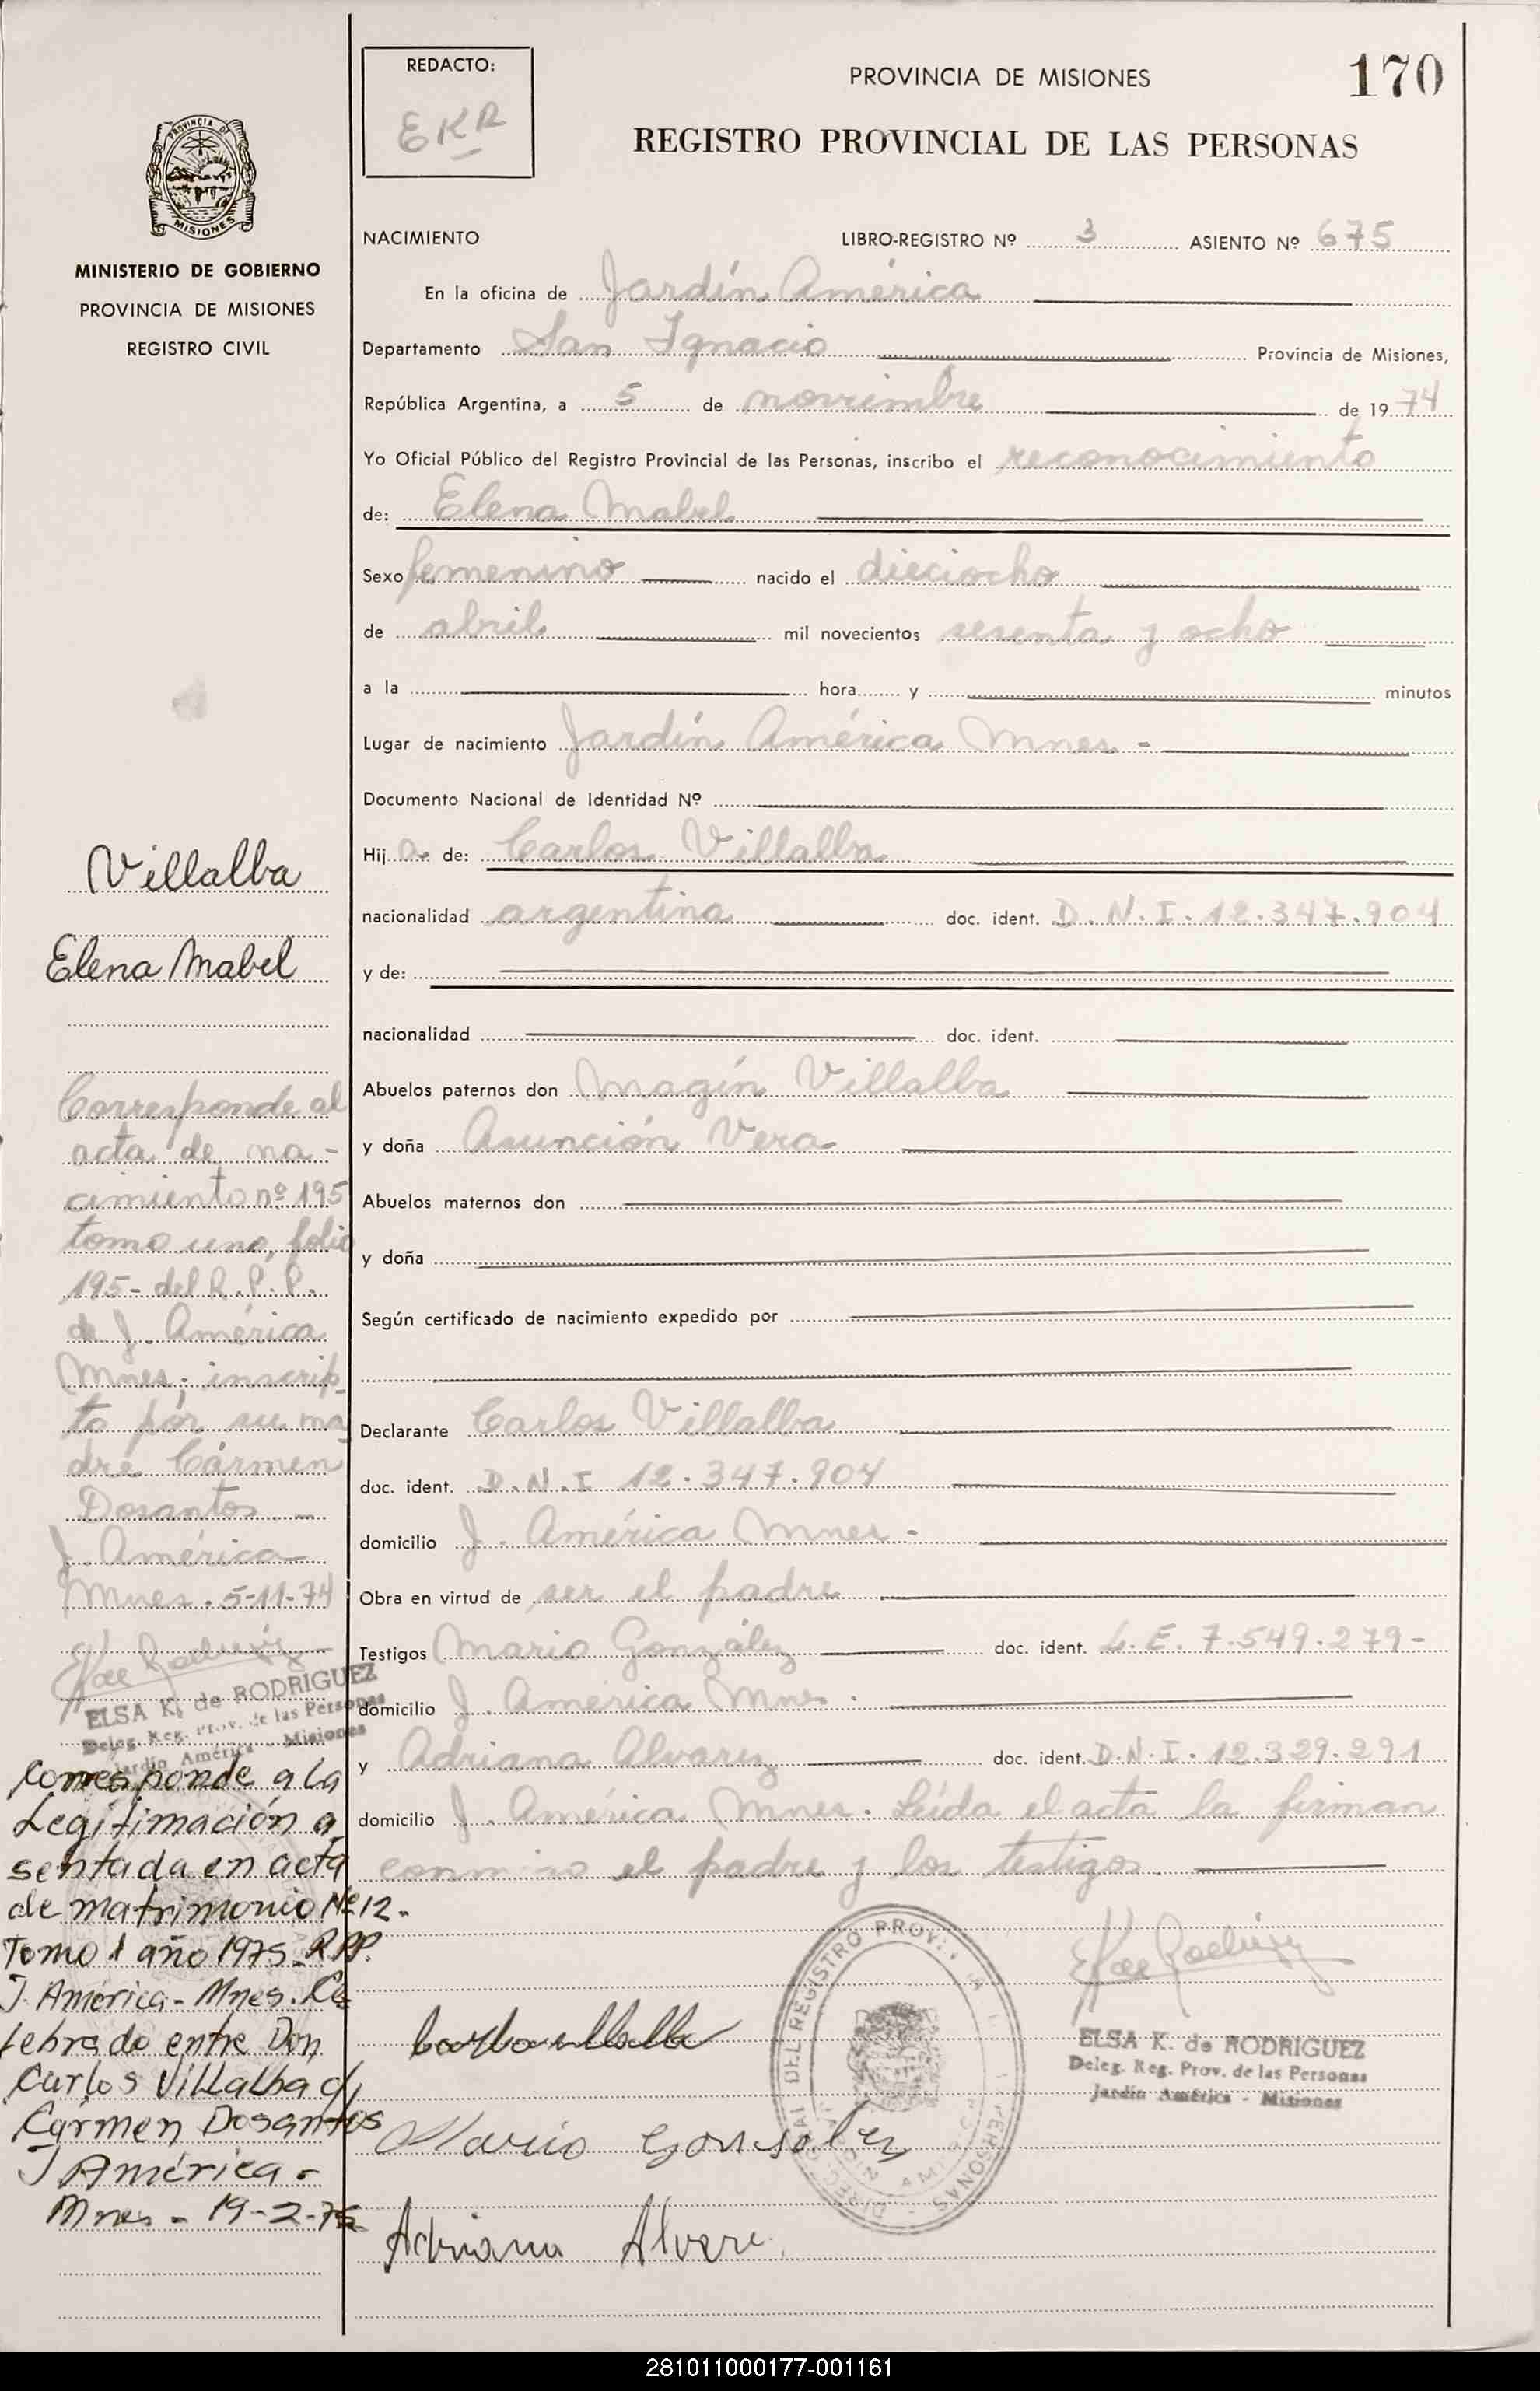 REDACTO:
EKR
PROVINCIA DE MISIONES
170
REGISTRO PROVINCIAL DE LAS PERSONAS
PROVINCIA DE
MISIONES
MINISTERIO DE GOBIERNO
PROVINCIA DE MISIONES
REGISTRO CIVIL
NACIMIENTO LIBRO-REGISTRO Nº 3 ASIENTO Nº 675
En la oficina de Jardín América
Departamento San Ignacio Provincia de Misiones,
República Argentina, a 5 de noviembre de 1974
Yo Oficial Público del Registro Provincial de las Personas, inscribo el reconocimiento
de: Elena Mabel
Sexo femenino nacido el dieciocho
de abril mil novecientos sesenta y ocho
a la hora y minutos
Lugar de nacimiento Jardín América Mnes -
Documento Nacional de Identidad Nº
Hija de: Carlos Villalba
nacionalidad argentina doc. ident. D.N.I. 12.347.904
y de:
nacionalidad doc. ident.
Abuelos paternos don Magín Villalba
y doña Asunción Vera
Abuelos maternos don
y doña
Según certificado de nacimiento expedido por
Declarante Carlos Villalba
doc. ident. D.N.I 12.347.904
domicilio J. América Mnes -
Obra en virtud de ser el padre
Testigos Mario González doc. ident. L.E. 7.549.279-
domicilio J. América Mnes.
y Adriana Alvarez doc. ident. D.N.I. 12.329.291
domicilio J. América Mnes. Leída el acta la firman
conmigo el padre y los testigos.
Villalba
Elena Mabel
Corresponde al
acta de na-
cimiento nº 195
tomo uno, folio
195- del R.P.P.
de J. América
Mnes; inscrip-
to por su ma
dre Cármen
Dosantos -
J. América
Mnes. 5-11-74
ELSA K. de RODRIGUEZ
Deleg. Reg. Prov. de las Personas
Jardín América - Misiones
Corresponde a la
Legitimación a
sentada en acta
de matrimonio Nº 12.
Tomo 1 año 1975. RPP.
J. América - Mnes. Ce
lebrado entre Don
Carlos Villalba c/
Carmen Dosantos
J América -
Mnes - 19-2-75
Mario Gonsalez
Adriana Alvare
ELSA K. de RODRIGUEZ
Deleg. Reg. Prov. de las Personas
Jardín América - Misiones
281011000177-001161